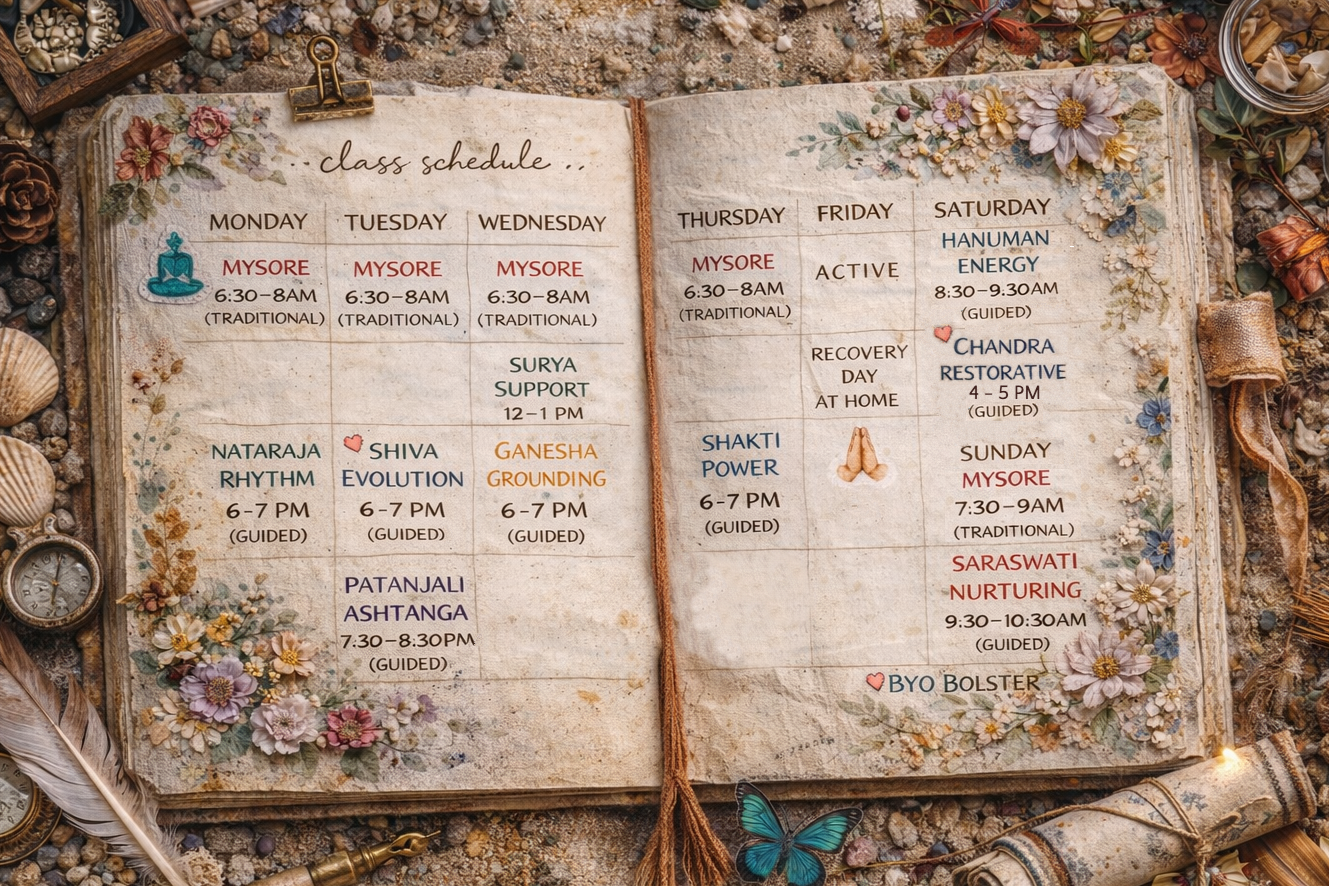 .. class schedule ..
MONDAY
MYSORE
6:30–8AM
(TRADITIONAL)
NATARAJA
RHYTHM
6–7 PM
(GUIDED)
TUESDAY
MYSORE
6:30–8AM
(TRADITIONAL)
SHIVA
EVOLUTION
6–7 PM
(GUIDED)
PATANJALI
ASHTANGA
7.30–8:30PM
(GUIDED)
WEDNESDAY
MYSORE
6:30–8AM
(TRADITIONAL)
SURYA
SUPPORT
12–1 PM
GANESHA
GROUNDING
6–7 PM
(GUIDED)
THURSDAY
MYSORE
6:30–8AM
(TRADITIONAL)
SHAKTI
POWER
6–7 PM
(GUIDED)
FRIDAY
ACTIVE
RECOVERY
DAY
AT HOME
SATURDAY
HANUMAN
ENERGY
8:30–9.30AM
(GUIDED)
CHANDRA
RESTORATIVE
4 – 5 PM
(GUIDED)
SUNDAY
MYSORE
7:30–9AM
(TRADITIONAL)
SARASWATI
NURTURING
9:30–10:30AM
(GUIDED)
BYO BOLSTER